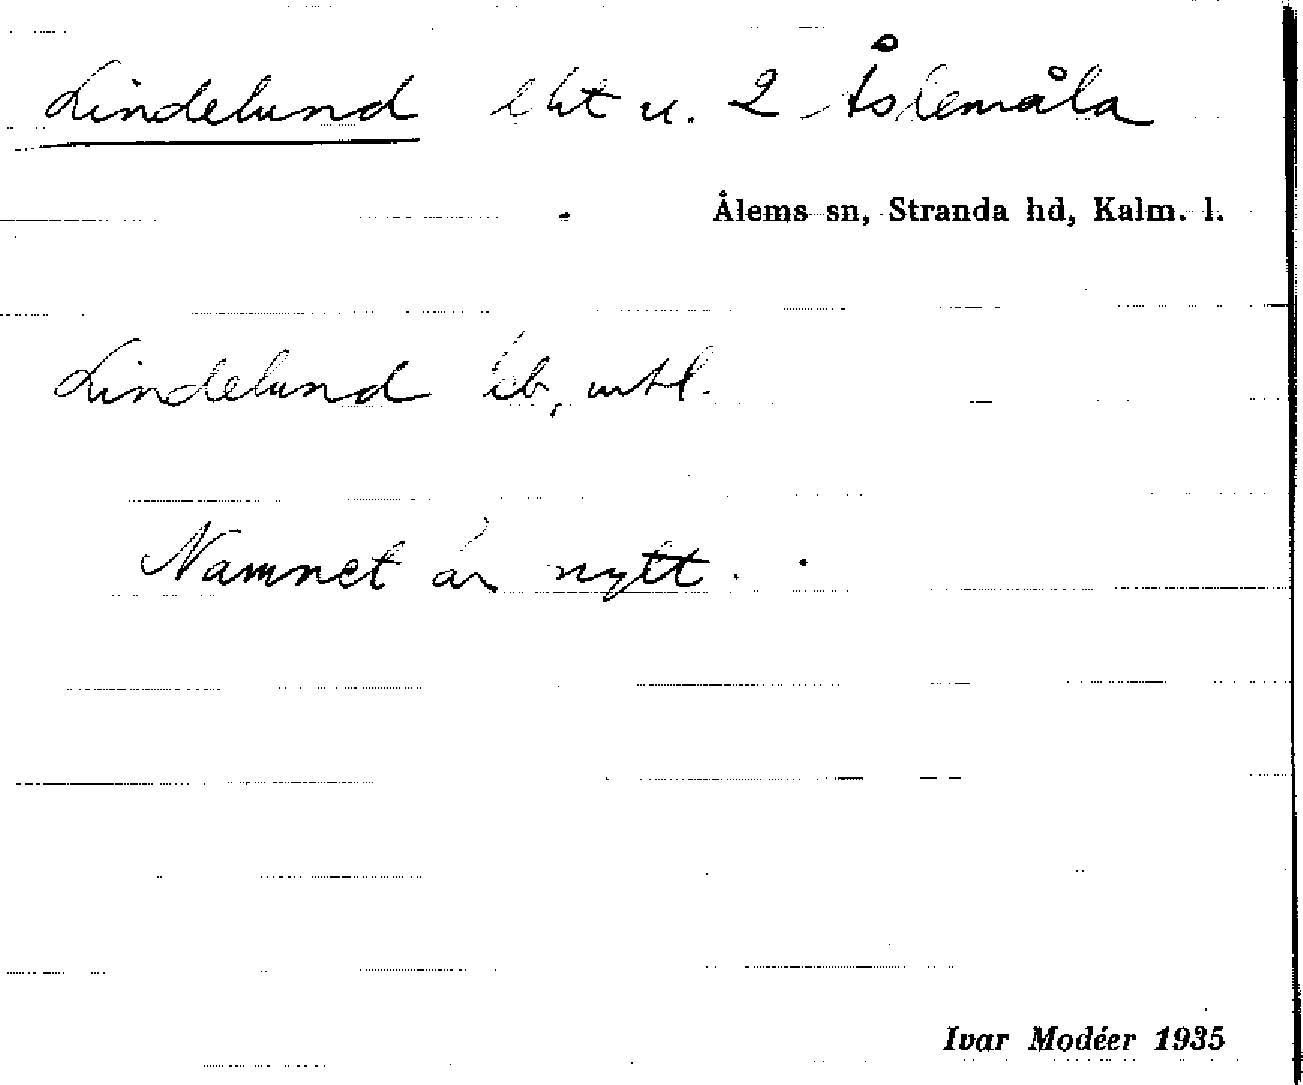 Lindelund lht u. 2 Åslemåla
Ålems sn, Stranda hd, Kalm. l.
Lindelund jb, mtl.
Namnet är nytt.
Ivar Modéer 1935